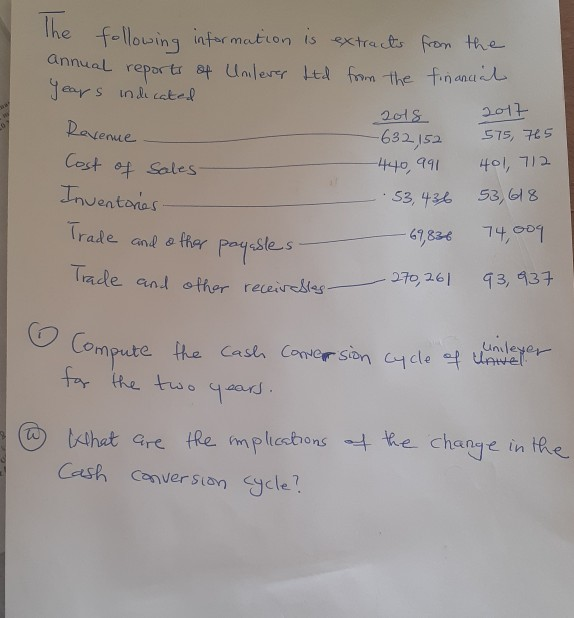 The following information is extracts from the
annual reports of Unilever Ltd from the financial
years indicated
2018 2017
Revenue 632,152 575,765
Cost of Sales 440,991 401,712
Inventories 53,436 53,618
Trade and other payables 69,836 74,009
Trade and other receivables 270,261 93,937
(i) Compute the cash conversion cycle of Unilever
for the two years.
(ii) What are the implications of the change in the
Cash conversion cycle?